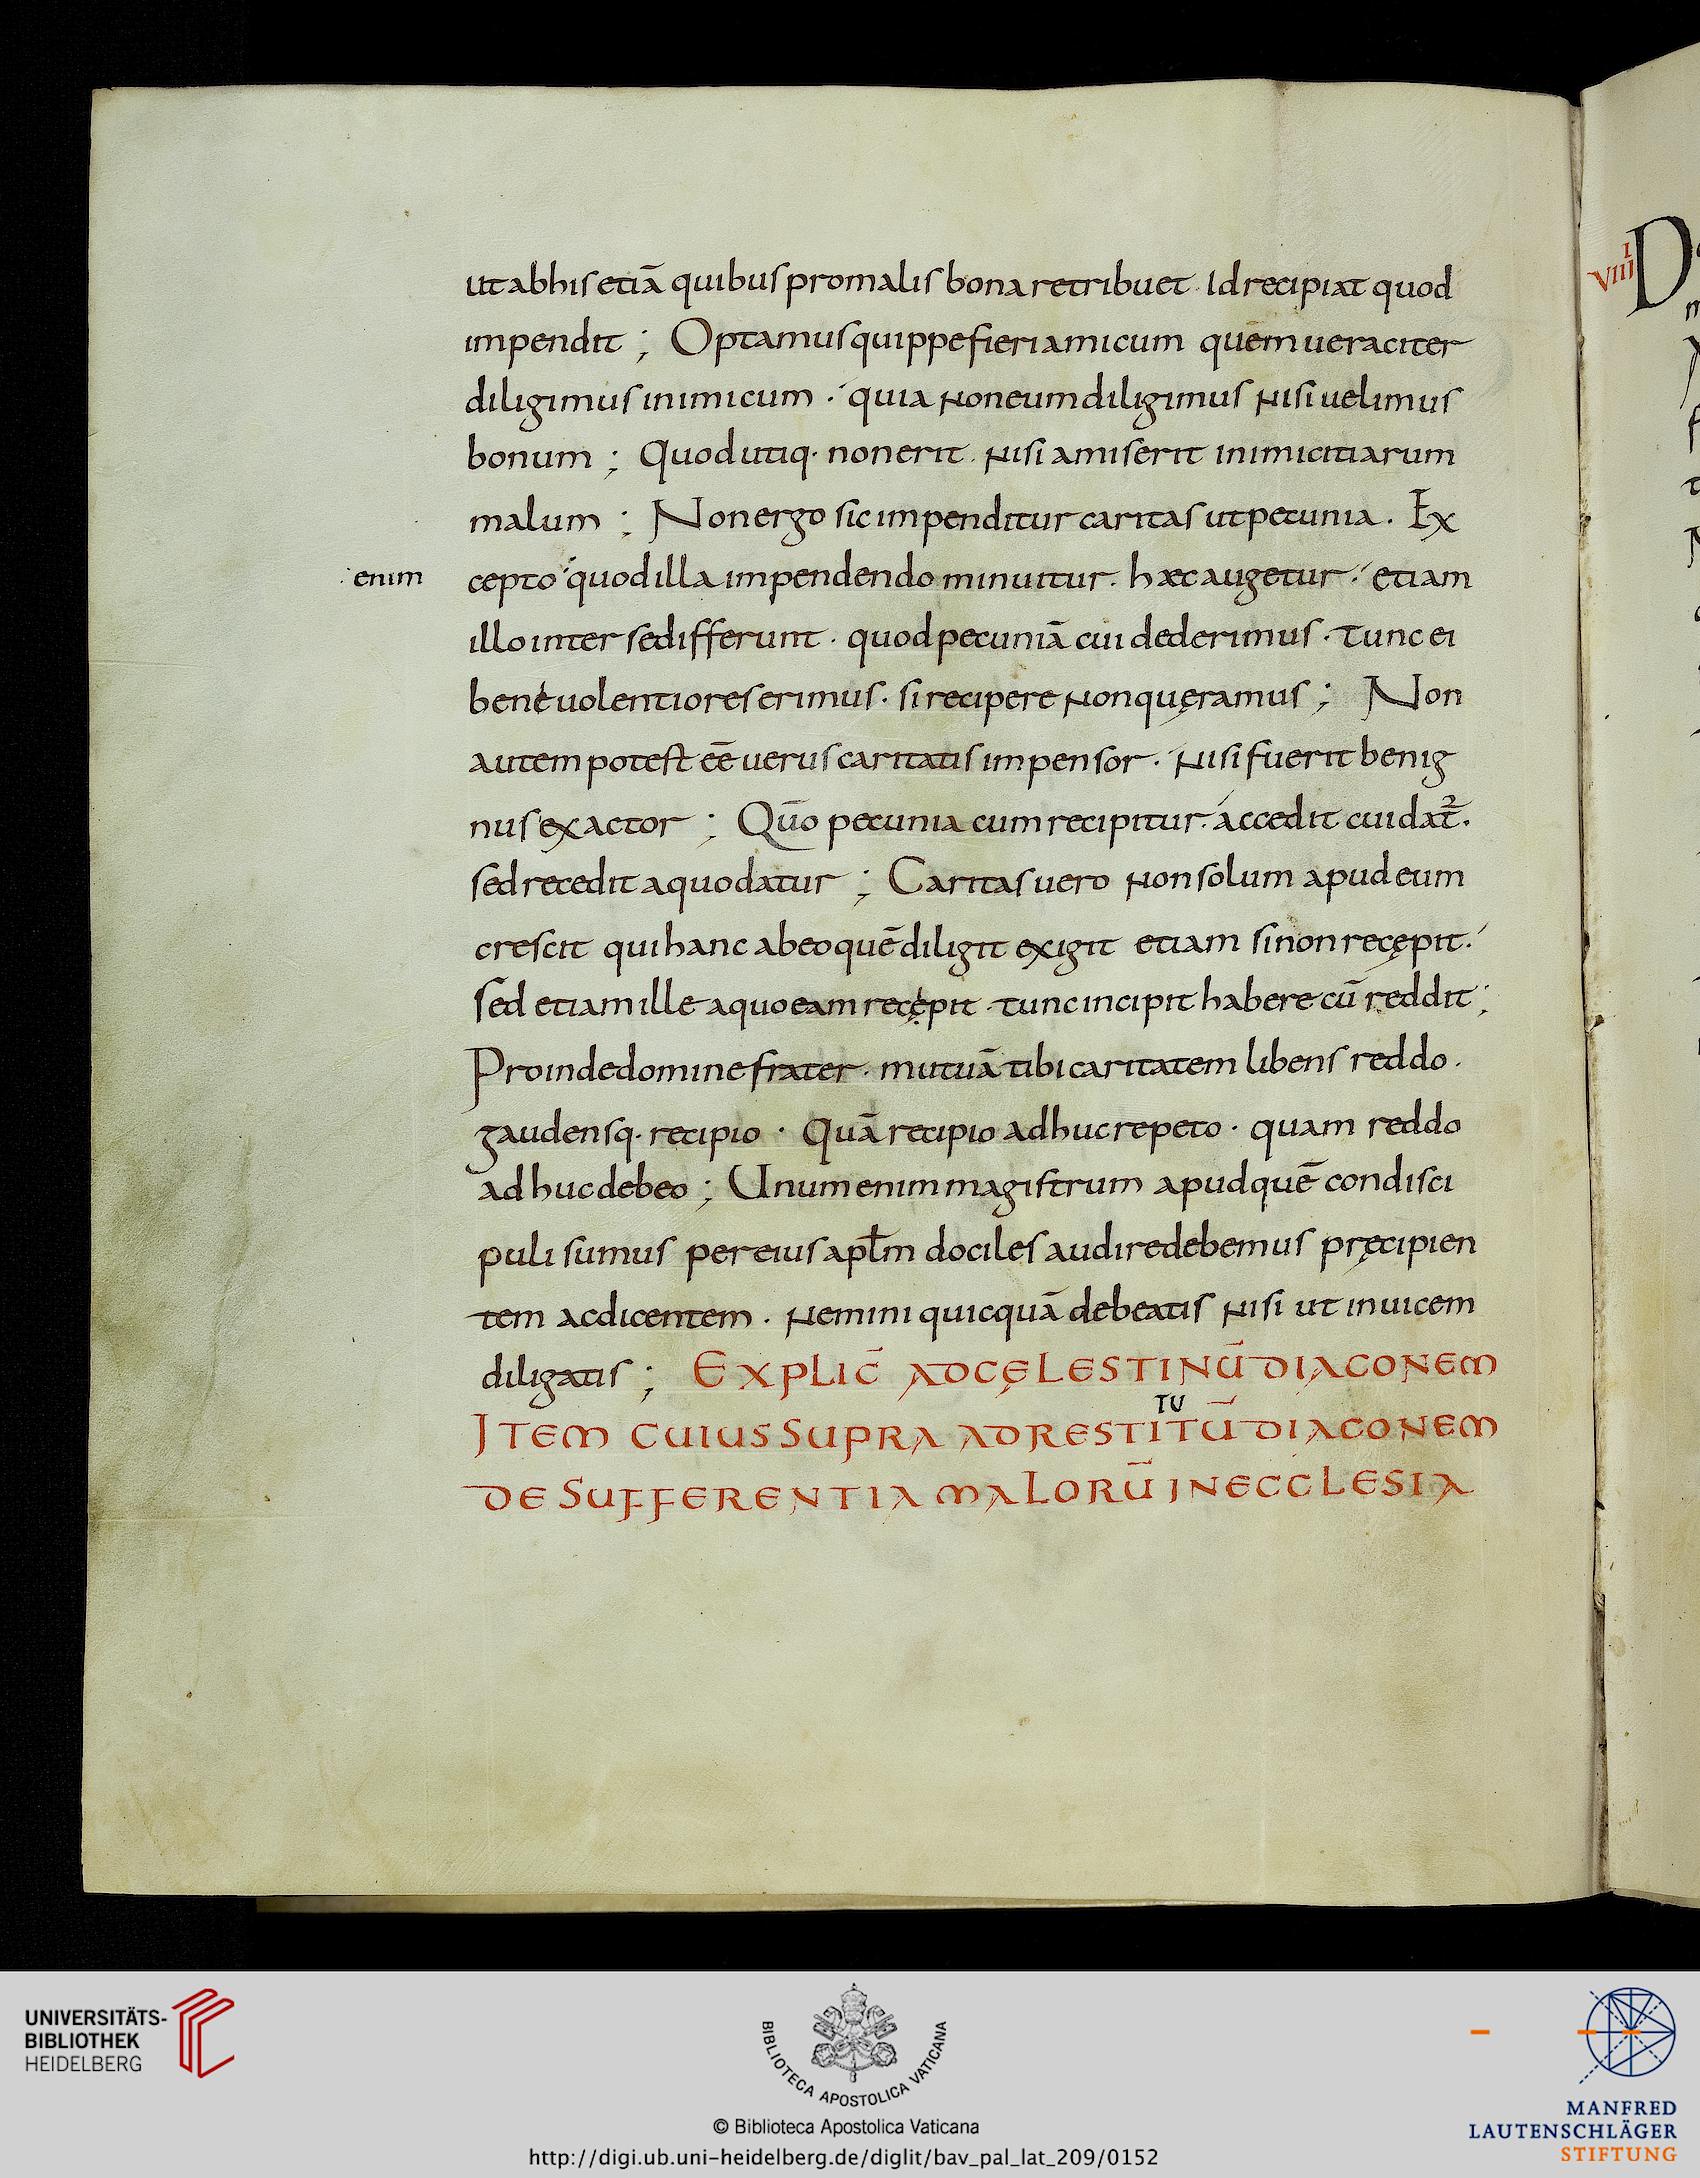 ut ab his etiā quibus pro malis bona retribuet. Id recipiat quod
impendit; Optamus quippe fieri amicum quem ueraciter
diligimus inimicum. quia non eum diligimus nisi uelimus
bonum; Quod utiq. non erit. nisi amiserit inimicitiarum
malum; Non ergo sic impenditur caritas ut pecunia. Ex
enim
cepto quod illa impendendo minuitur. hæc augetur. etiam
illo inter se differunt. quod pecuniā cui dederimus. tunc ei
beneuolentiores erimus. si recipere non quęramus; Non
autem potest eē uerus caritatis impensor. nisi fuerit benig
nus exactor; Quō pecunia cum recipitur. accedit cui dat̄.
sed recedit a quo datur; Caritas uero non solum apud eum
crescit qui hanc ab eo quē diligit exigit etiam si non recępit.
sed etiam ille a quo eam recępit. tunc incipit habere cū reddit;
Proinde domine frater. mutuā tibi caritatem libens reddo.
gaudensq. recipio. Quā recipio adhuc repeto. quam reddo
adhuc debeo; Unum enim magistrum apud quē condisci
puli sumus per eius apłm dociles audire debemus pręcipien
tem ac dicentem. nemini quicquā debeatis nisi ut inuicem
diligatis; EXPLIC̄ AD CĘLESTINŪ DIACONEM
TU
ITEM CUIUS SUPRA AD RESTITŪ DIACONEM
DE SUFFERENTIA MALORŪ IN ECCLESIA
I
VIII D
UNIVERSITÄTS-
BIBLIOTHEK
HEIDELBERG
BIBLIOTECA APOSTOLICA VATICANA
© Biblioteca Apostolica Vaticana
http://digi.ub.uni-heidelberg.de/diglit/bav_pal_lat_209/0152
MANFRED
LAUTENSCHLÄGER
STIFTUNG